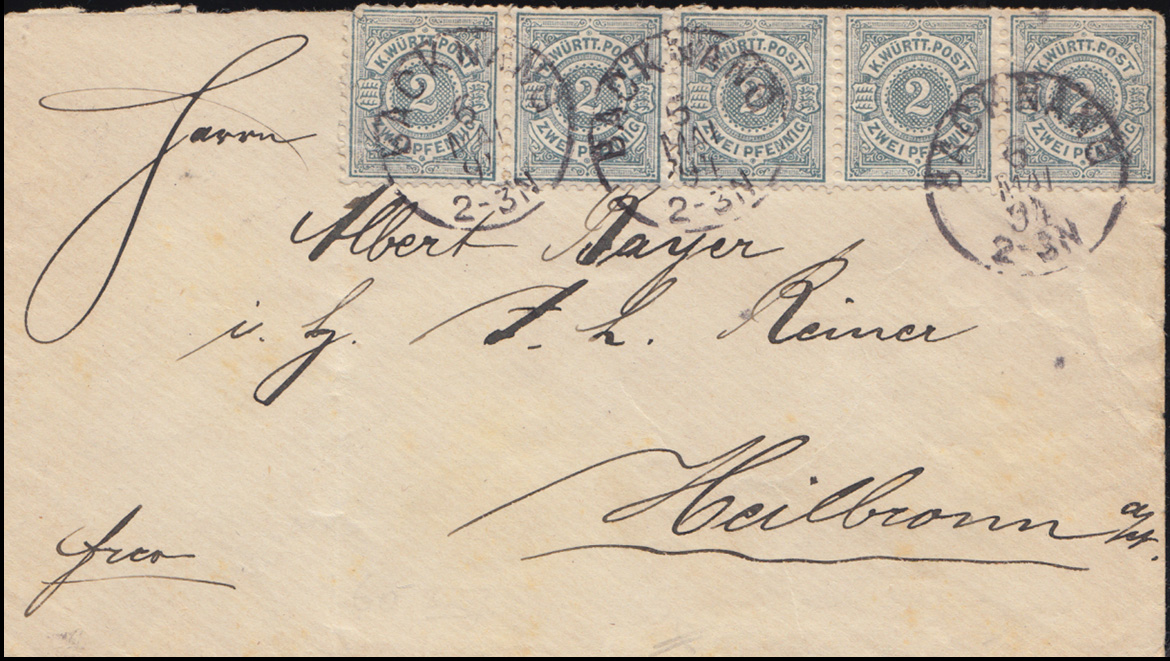 K. WÜRTT. POST 2 ZWEI PFENNIG
K. WÜRTT. POST 2 ZWEI PFENNIG
K. WÜRTT. POST 2 ZWEI PFENNIG
K. WÜRTT. POST 2 ZWEI PFENNIG
K. WÜRTT. POST 2 ZWEI PFENNIG
BACKNANG 6 MAI 2-3N
BACKNANG 6 MAI 2-3N
BACKNANG 6 MAI 2-3N
Herrn
Albert Mayer
i. H. F. L. Reiner
Heilbronn a/N.
frco